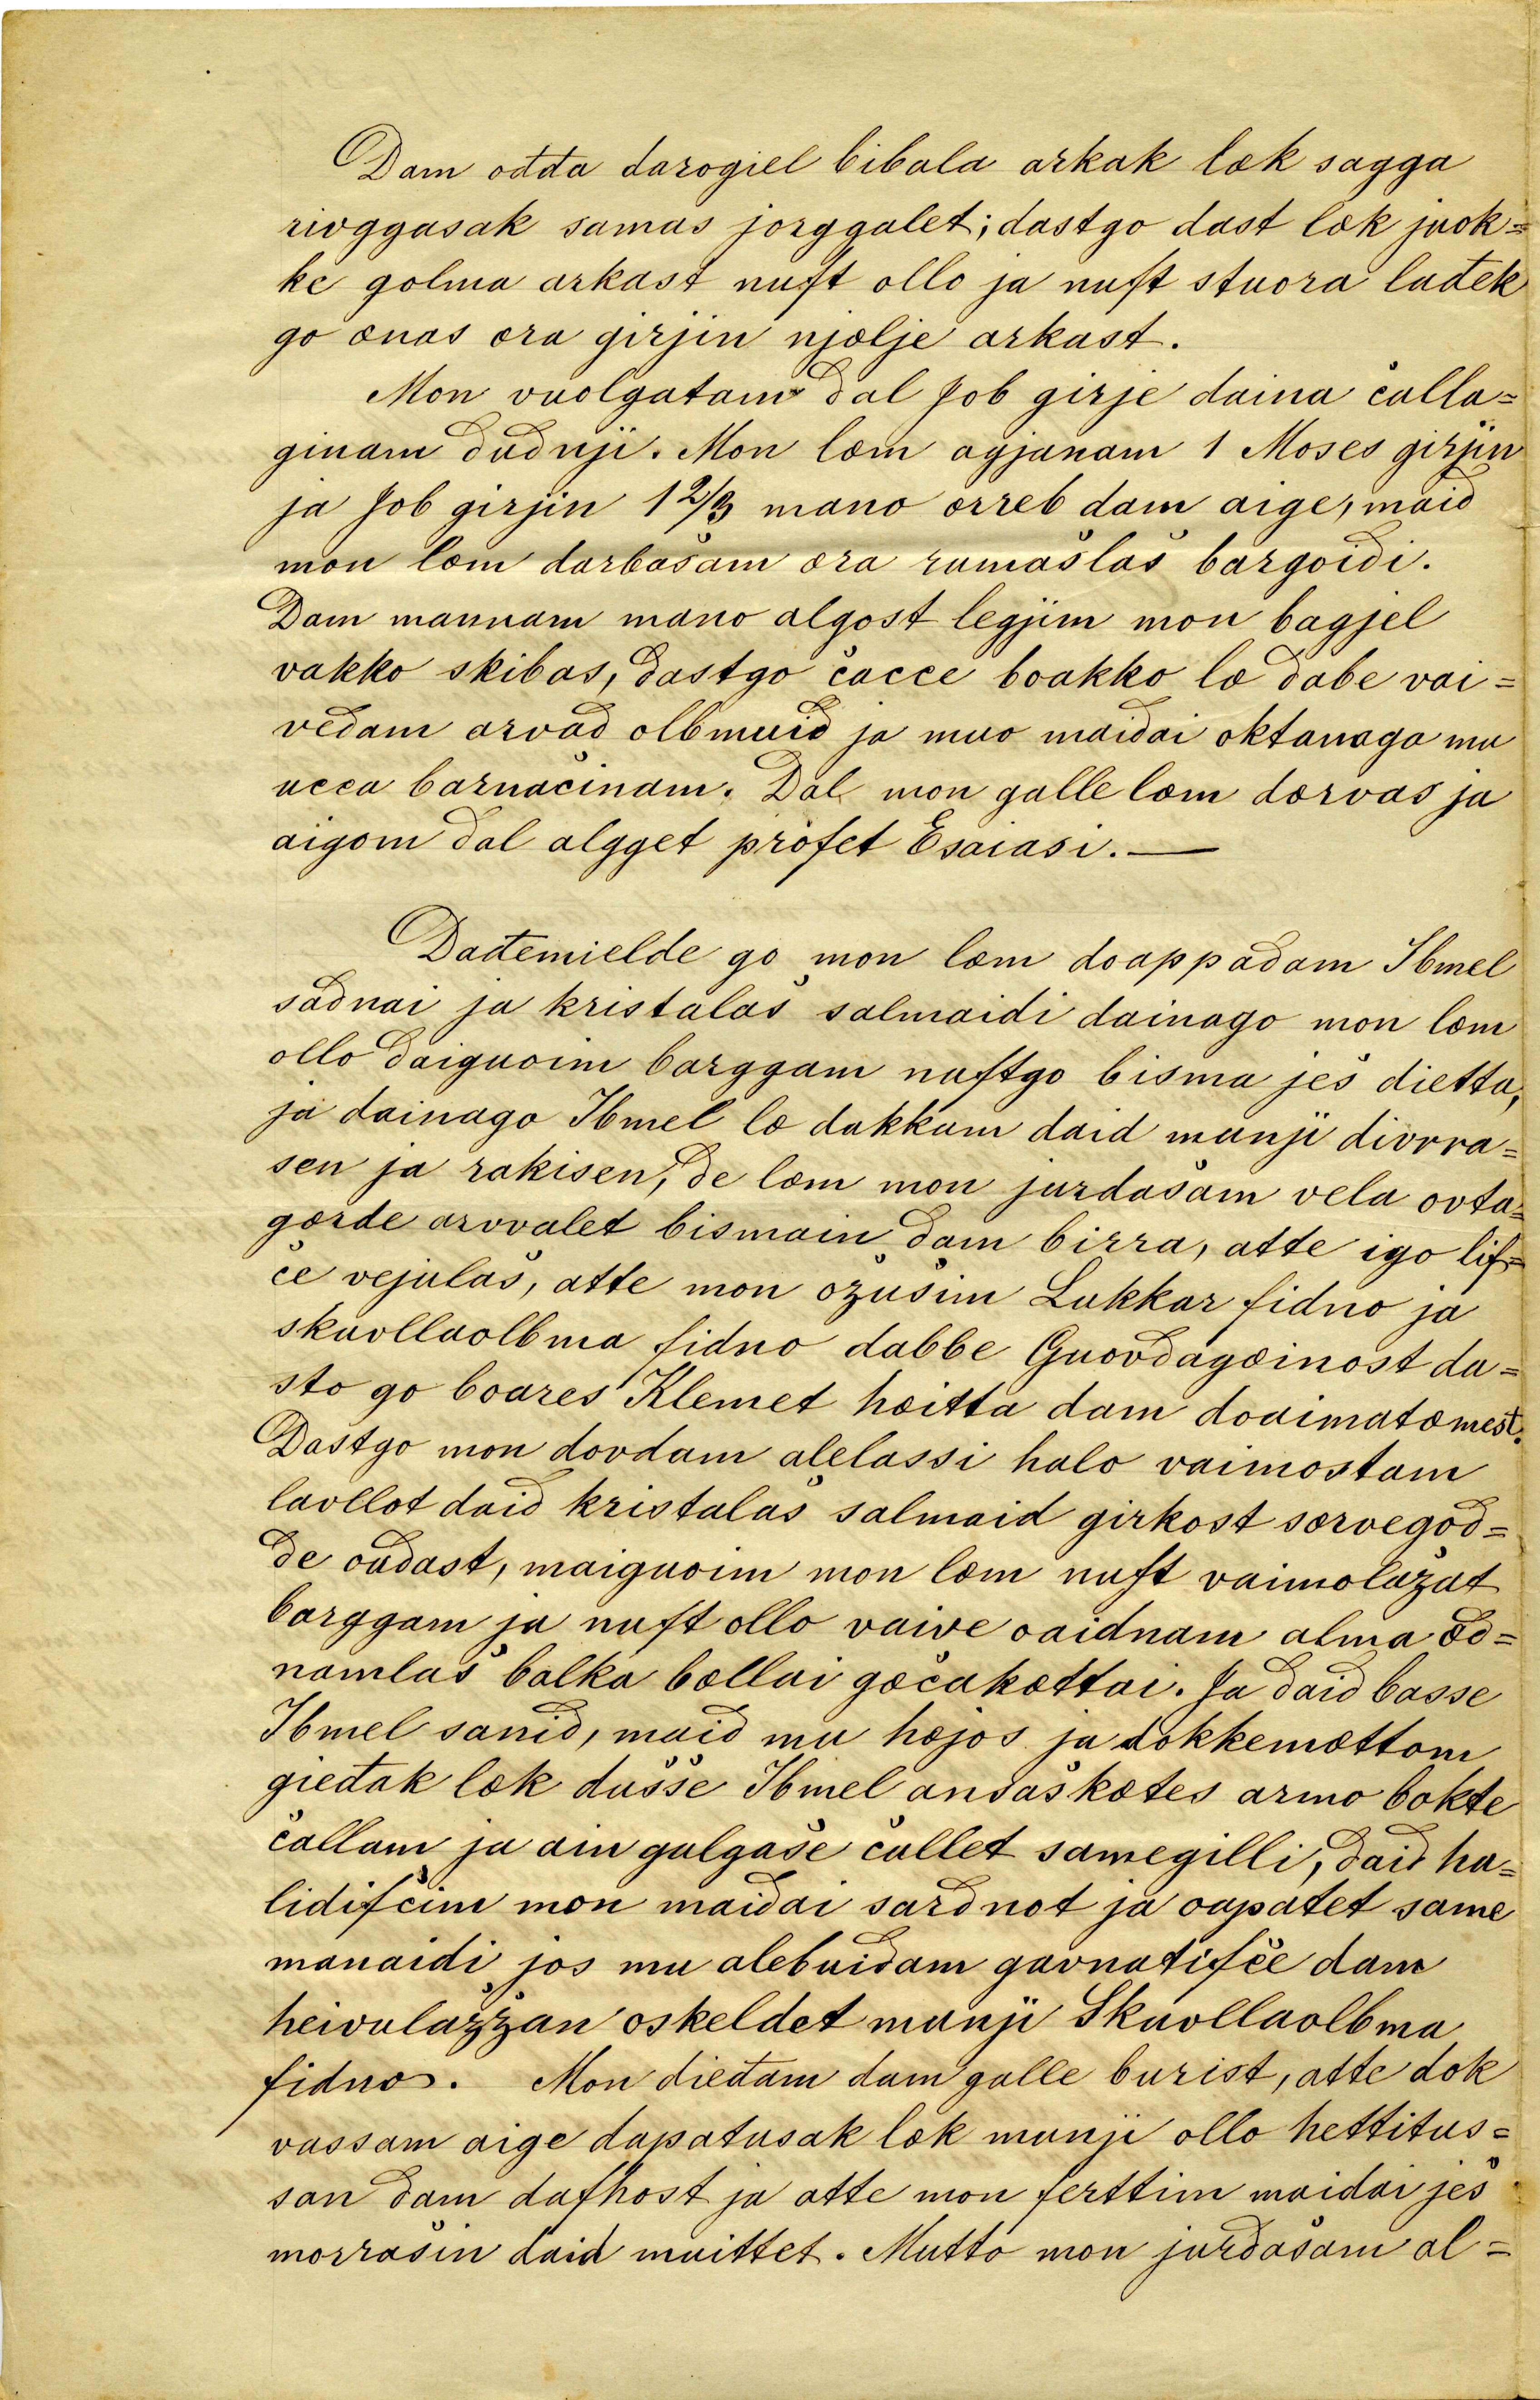 Dam ođđa darogiel bibala arkak læk sagga
rivggasak samas jorggalet; dastgo dast læk juok=
ke golma arkast nuft ollo ja nuft stuora lađek
go ænas æra girjin njælje arkast.
Mon vuolgatam dal Job girje daina čalla=
ginam dudnji. Mon læm agjanam 1 Moses girjin
ja Job girjin 1 2/3 mano ærreb dam aige, maid
mon læm darbašam æra rumašlaš bargoidi.
Dam mannam mano algost legjim mon bagjel
vakko skibas, dastgo čacce boakko læ dabe vai=
vedam arvad olbmuid ja muo maidai oktanaga mu
ucca barnačinam. Dal mon galle læm dærvas ja
aigom dal algget profet Esaiasi. —
Dađemielde go mon læm doappadam Ibmel
sadnai ja kristalaš salmaidi dainago mon læm
ollo daiguoim barggam nuftgo bisma ješ dietta,
ja dainago Ibmel læ dakkam daid munji divrra=
sen ja rakisen, de læm mon jurdašam vela ovta=
gærde arvvalet bismain dam birra, atte igo lif=
če vejulaš, atte mon ožušim Lukkar fidno ja
skuollaolbma fidno dabbe Guovdagæinost da=
sto go boares Klemet hæitta dam doaimatæmest.
Dastgo mon dovdam alelassi halo vaimostam
lavllot daid kristalaš salmaid girkost særvegod=
de oudast, maiguoim mon læm nuft vaimolažat
barggam ja nuft ollo vaive oaidnam alma æd=
namlaš balka bællai gæčakættai. Ja daid basse
Ibmel sanid, maid mu hæjos ja dokkemættom
gieđak læk dušše Ibmel ansaškætes armo bokte
čallam ja ain galgaše čallet samegilli, daid ha=
lidifčim mon maidai sardnot ja oapatet same
manaidi jos mu alebuidam gavnatifče dam
heivulažžan oskeldet munji Skuollaolbma
fidno. Mon dieđam dam galle burist, atte dok
vassam aige dapatusak læk munji ollo hettitus=
san dam dafhost ja atte mon ferttim maidai ješ
morrašin daid muittet. Mutto mon jurdašam al=